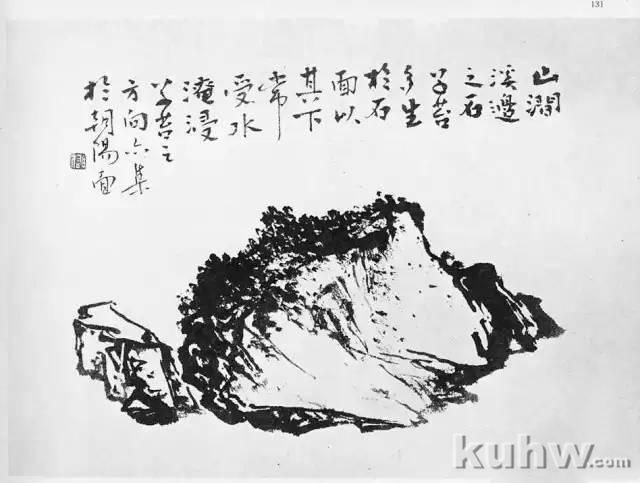 131
山澗
溪邊
之石
苔
多生
於石
面以
其下
常
受水
淹浸
苔之
方向亦集
於朝陽面
kuhw.com